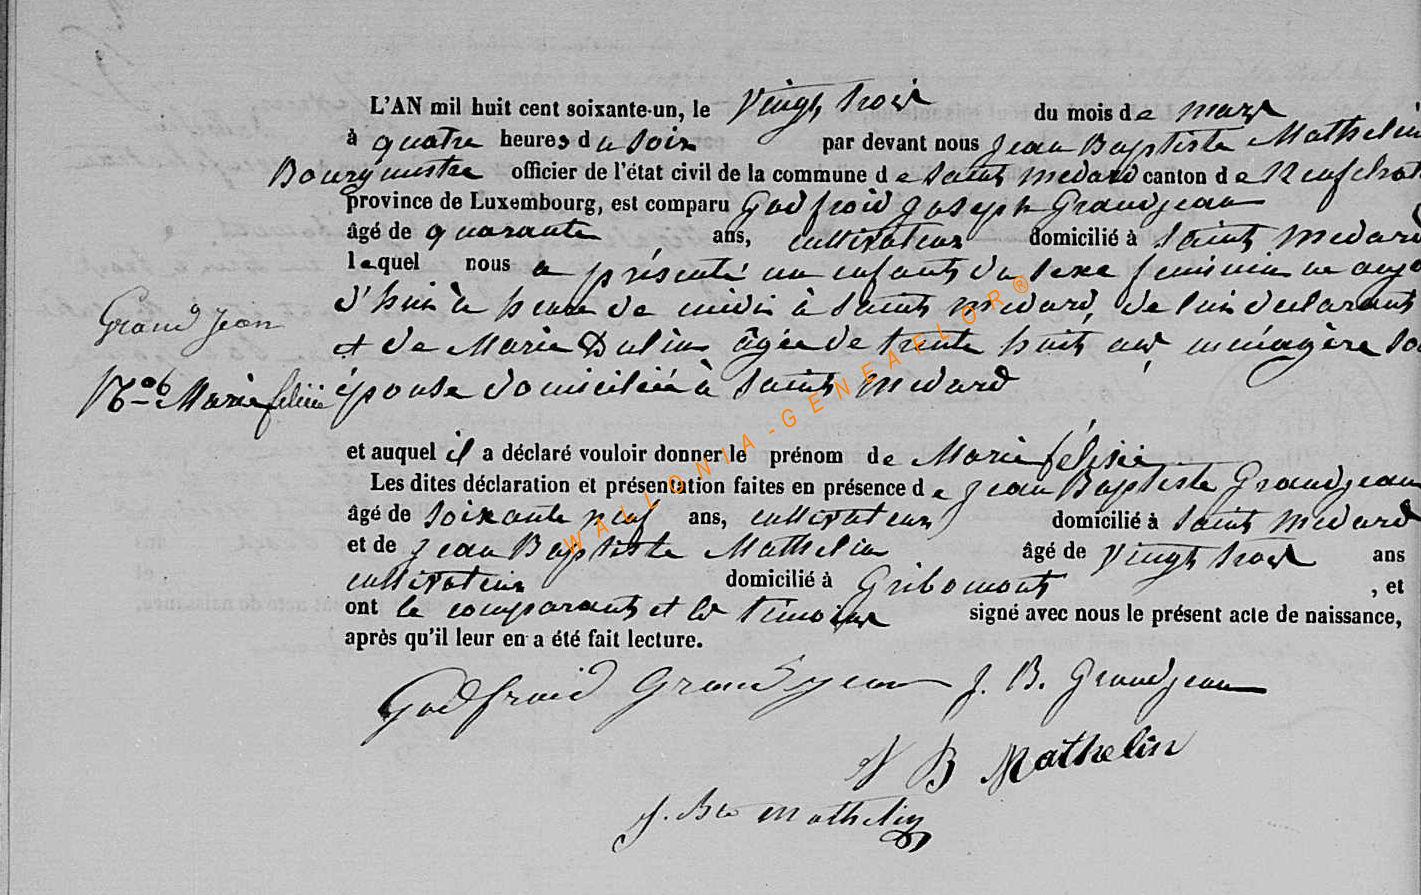 L'AN mil huit cent soixante-un, le vingt trois du mois de mars
à quatre heures du soir par devant nous Jean Baptiste Mathelin
Bourgmestre officier de l'état civil de la commune de Saint Medard canton de Neufchat
province de Luxembourg, est comparu Godfroid Joseph Grandjean
âgé de quarante ans, cultivateur domicilié à Saint Medard
lequel nous a présenté un enfant du sexe feminin né aujo
d'hui à heure de midi à Saint Medard, de lui declarant
et de Marie Dulieu âgée de trente huit ans ménagère so
épouse domiciliée à Saint Medard
Grand Jean
Marie felicie
et auquel il a déclaré vouloir donner le prénom de Marie félisie
Les dites déclaration et présentation faites en présence de Jean Baptiste Grandjean
âgé de soixante neuf ans, cultivateur domicilié à Saint Medard
et de Jean Baptiste Mathelin âgé de vingt trois ans
cultivateur domicilié à Gribomont, et
ont le comparant et les témoins signé avec nous le présent acte de naissance,
après qu'il leur en a été fait lecture.
Godfroid Grandjean J. B. Grandjean
J B Mathelin
J. Bte Mathelin
WALLONIA-GENEAFLOR®